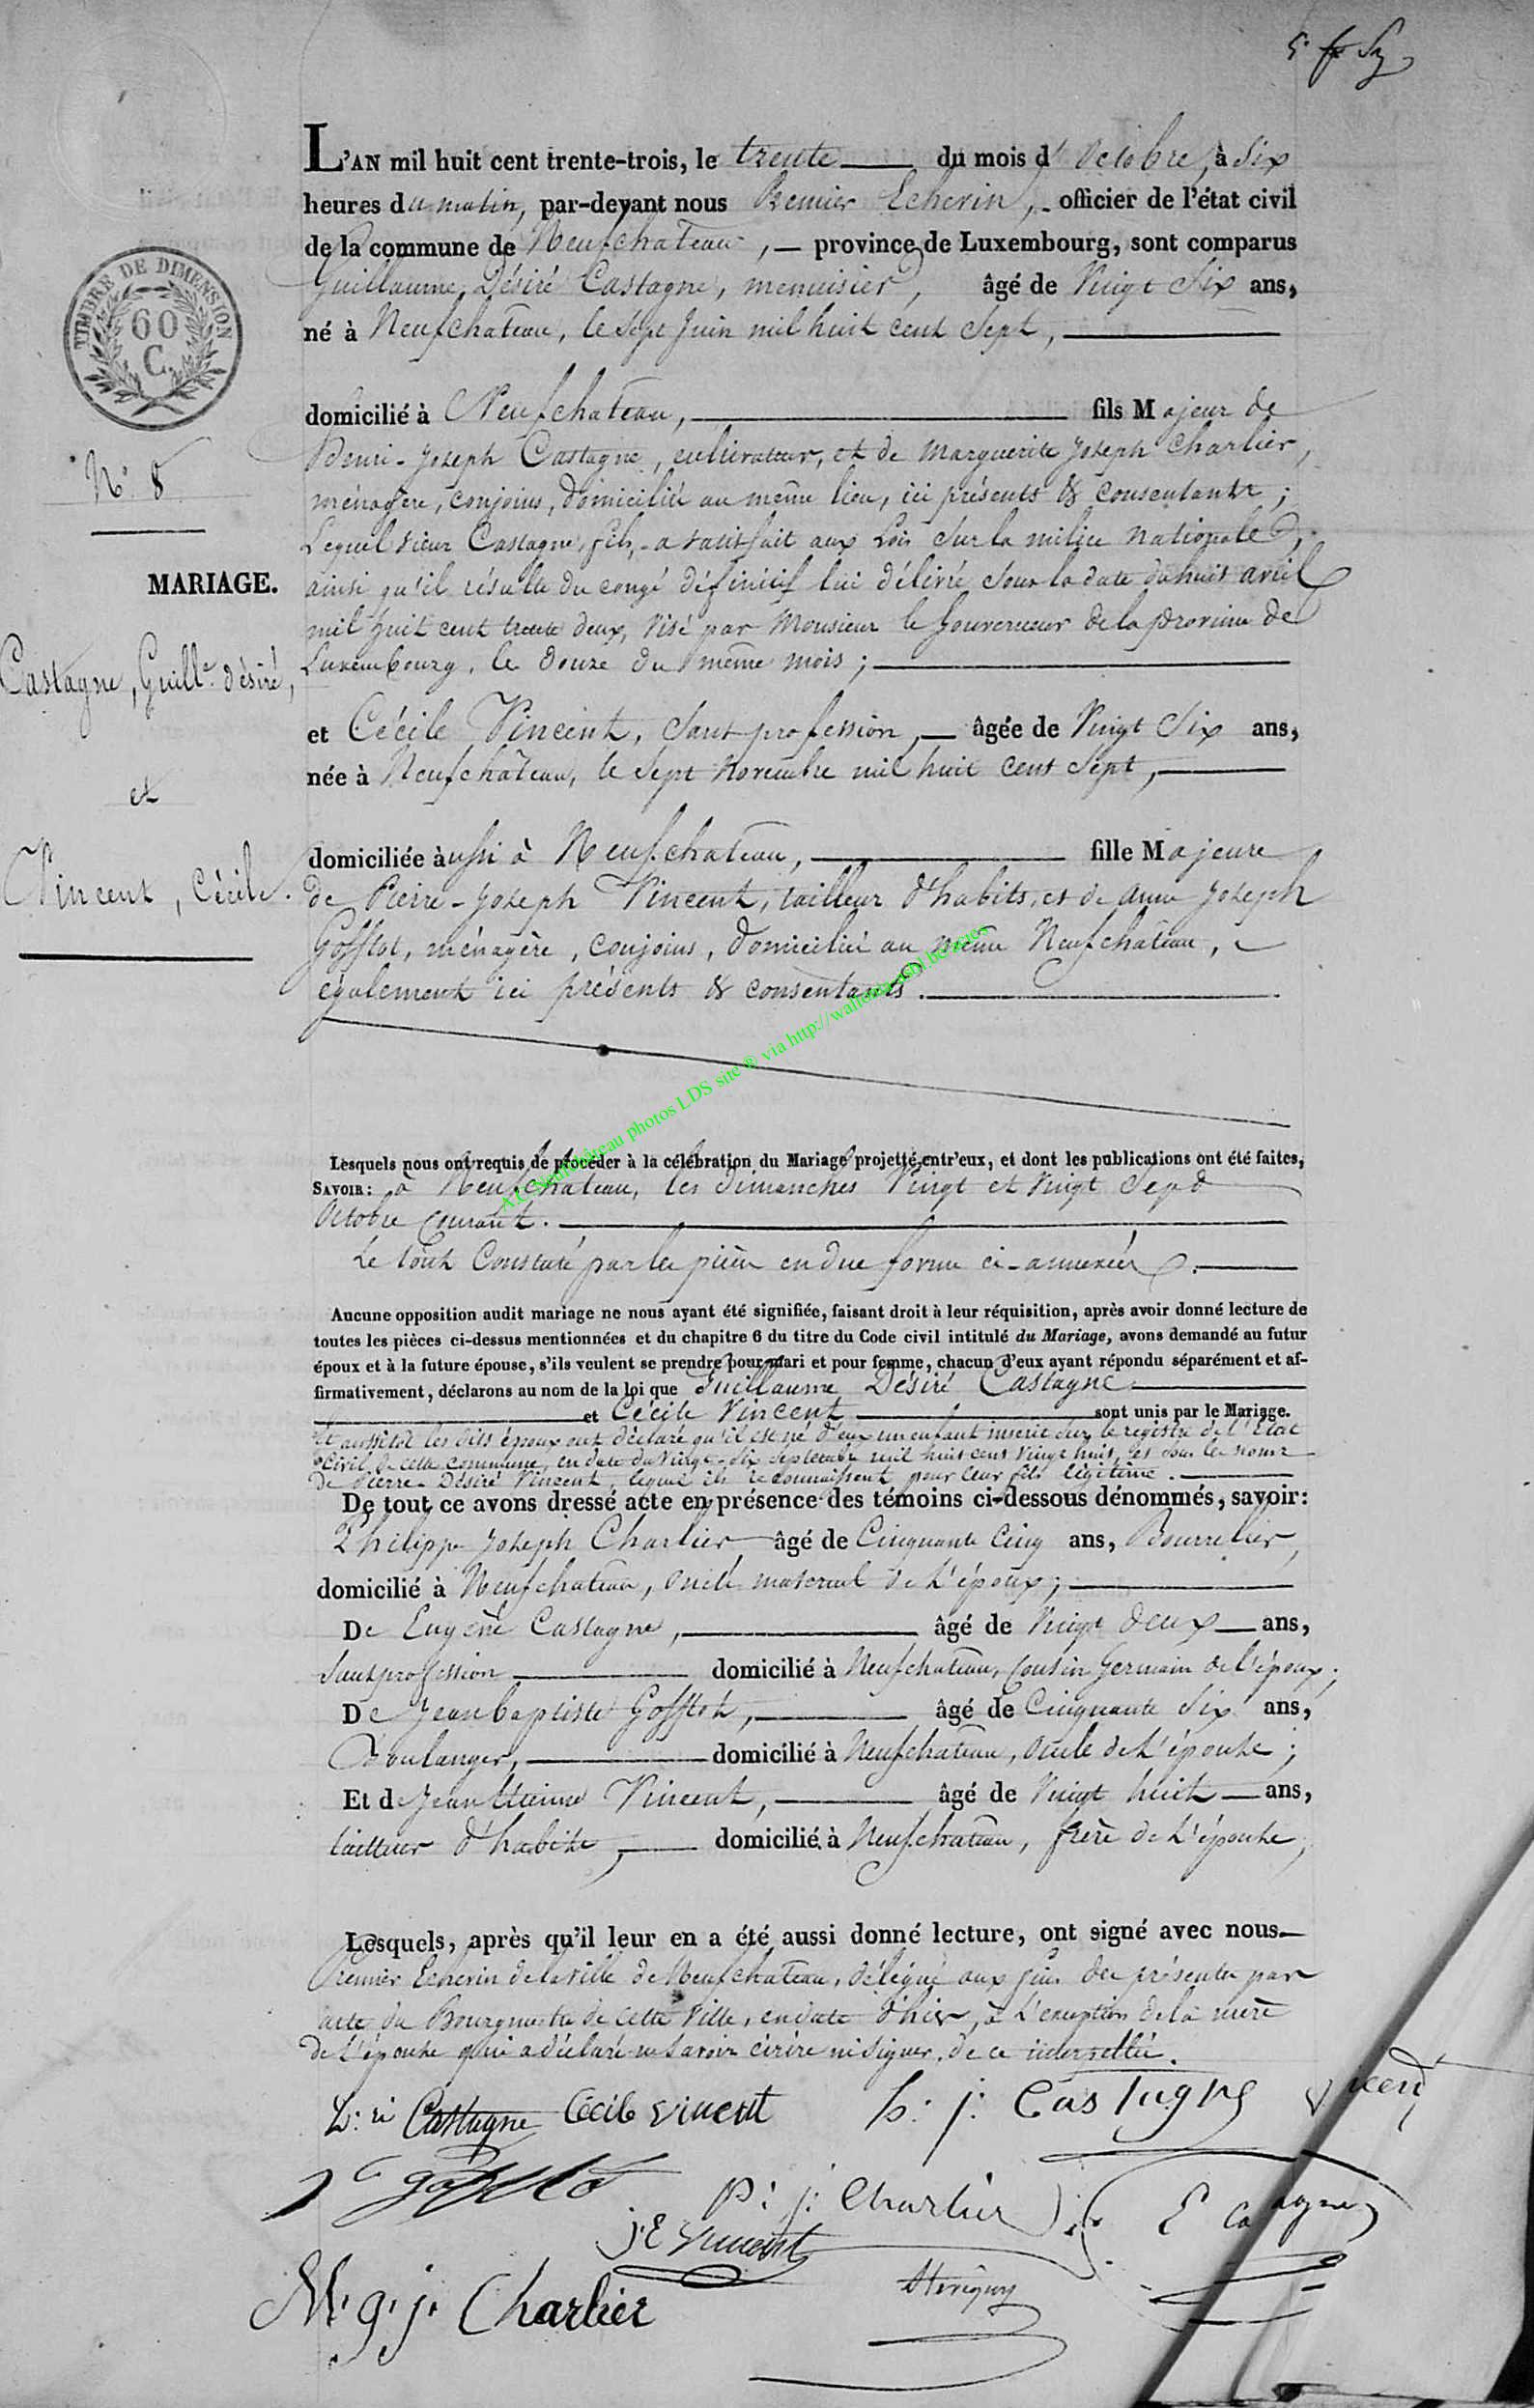 L'AN mil huit cent trente-trois, le trente du mois d'Octobre, à Six
heures du matin, par-devant nous Premier Echevin, officier de l'état civil
de la commune de Neufchateau, province de Luxembourg, sont comparus
Guillaume Désiré Castagne, menuisier, âgé de Vingt Six ans,
né à Neufchateau, le Sept Juin mil huit cent Sept,
TIMBRE DE DIMENSION
60
C.
domicilié à Neufchateau, fils Majeur de
Henri-Joseph Castagne, cultivateur, et de Marguerite Joseph Charlier,
N° 8
ménagère, conjoins, domiciliés au même lieu, ici présents & consentants;
Lequel sieur Castagne, fils, a satisfait aux Lois sur la milice nationale,
MARIAGE.
ainsi qu'il résulte du congé définitif lui délivré sous la date du huit avril
mil huit cent trente deux, visé par Monsieur le Gouverneur de la province de
Luxembourg, le douze du même mois;
Castagne, Guill.e désiré,
et
Vincent, Cécile.
et Cécile Vincent, sans profession, âgée de Vingt Six ans,
née à Neufchâteau, le Sept Novembre mil huit cent Sept,
domiciliée aussi à Neufchateau, fille Majeure
de Pierre-Joseph Vincent, tailleur d'habits, et de anne Joseph
Gofflot, ménagère, conjoins, domiciliés au même Neufchateau,
également ici présents & consentants.
photos LDS site ® via http://
Lesquels nous ont requis de procéder à la célébration du Mariage projetté entr'eux, et dont les publications ont été faites,
SAVOIR: à Neufchateau, les Dimanches Vingt et Vingt Sept
Octobre courant.
Le tout Constaté par les pièces en due forme ci-annexées.
Aucune opposition audit mariage ne nous ayant été signifiée, faisant droit à leur réquisition, après avoir donné lecture de
toutes les pièces ci-dessus mentionnées et du chapitre 6 du titre du Code civil intitulé du Mariage, avons demandé au futur
époux et à la future épouse, s'ils veulent se prendre pour mari et pour femme, chacun d'eux ayant répondu séparément et af-
firmativement, déclarons au nom de la loi que Guillaume Désiré Castagne
et Cécile Vincent sont unis par le Mariage.
Et aussitôt les dits époux ont déclaré qu'il est né d'eux un enfant inscrit sur le registre de l'Etat
Civil de cette commune, en date du Vingt-six Septembre mil huit cent vingt huit, et sous les noms
de Pierre-Désiré Vincent, lequel ils reconnaissent pour leur fils légitime.
De tout ce avons dressé acte en présence des témoins ci-dessous dénommés, savoir:
Philippe Joseph Charlier âgé de Cinquante Cinq ans, Bourrelier,
domicilié à Neufchateau, oncle maternel de l'époux;
De Eugène Castagne, âgé de Vingt deux ans,
Sans profession domicilié à Neufchateau, Cousin Germain de l'époux;
De Jean baptiste Gofflot, âgé de Cinquante Six ans,
Boulanger, domicilié à Neufchateau, oncle de L'épouse;
Et de Jean Etienne Vincent, âgé de Vingt huit ans,
tailleur d'habits, domicilié à Neufchateau, frère de L'épouse,
Lesquels, après qu'il leur en a été aussi donné lecture, ont signé avec nous
Premier Echevin de la ville de Neufchateau, délégué aux fins des présentes par
acte du Bourgmestre de cette Ville, en date d'hier, à L'exception de la mère
de L'épouse qui a déclaré ne savoir écrire ni signer, de ce interpellée.
Castagne Cécile vincent h: j: Castagne
p: j: Charlier E Ca agne
j: E vincent
M: g: j: Charlier